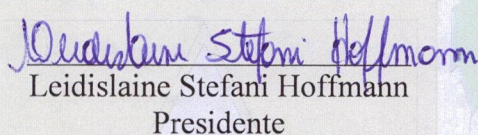 Leidislaine Stefani Hoffmann
Leidislaine Stefani Hoffmann
Presidente